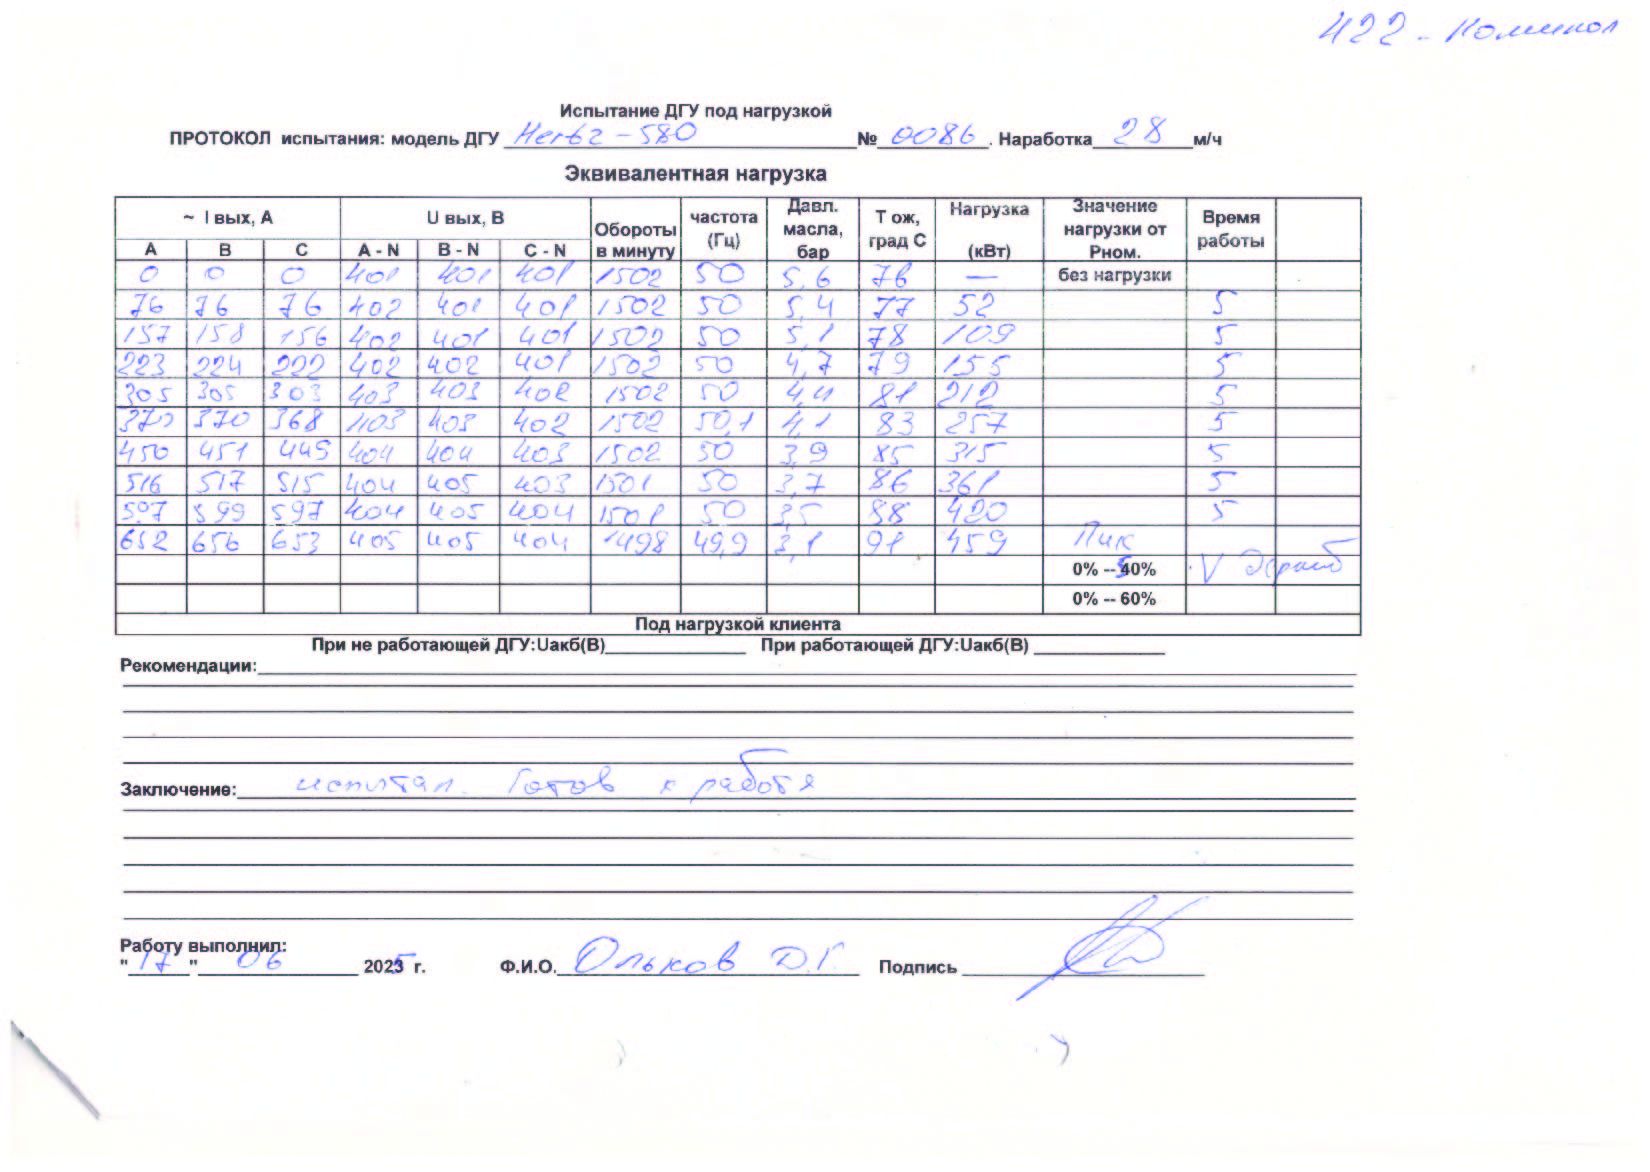 422 - Коминал
Испытание ДГУ под нагрузкой
ПРОТОКОЛ испытания: модель ДГУ Hertz - 580 № 0086. Наработка 28 м/ч
Эквивалентная нагрузка
~ I вых, А U вых, В Обороты в минуту частота (Гц) Давл. масла, бар Т ож, град С Нагрузка (кВт) Значение нагрузки от Рном. Время работы
А В С А - N В - N С - N
0 0 0 401 401 401 1502 50 5,6 76 — без нагрузки
76 76 76 402 401 401 1502 50 5,4 77 52 5
157 158 156 402 401 401 1502 50 5,1 78 109 5
223 224 222 402 402 401 1502 50 4,7 79 155 5
305 305 303 403 403 402 1502 50 4,4 81 212 5
370 370 368 403 403 402 1502 50,1 4,1 83 257 5
450 451 449 404 404 403 1502 50 3,9 85 315 5
516 517 515 404 405 403 1501 50 3,7 86 361 5
597 599 597 404 405 404 1501 50 3,5 88 420 5
652 656 653 405 405 404 1498 49,9 3,1 91 459 Пик
0% -- 50% V
0% -- 60%
Под нагрузкой клиента
При не работающей ДГУ:Uакб(В) При работающей ДГУ:Uакб(В)
Рекомендации:
Заключение: испытан. Готов к работе
Работу выполнил:
"17" 06 2025 г. Ф.И.О. Ольков Д.Г. Подпись